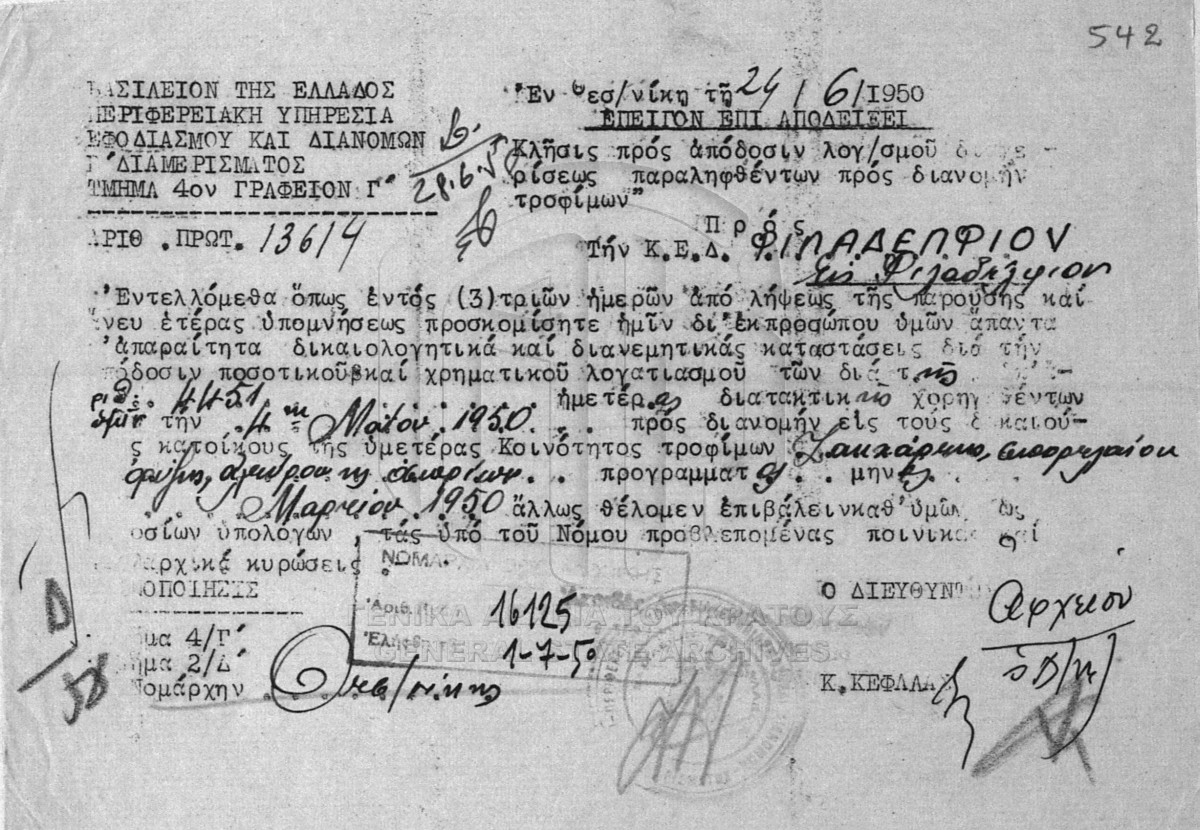 542
ΒΑΣΙΛΕΙΟΝ ΤΗΣ ΕΛΛΑΔΟΣ
ΠΕΡΙΦΕΡΕΙΑΚΗ ΥΠΗΡΕΣΙΑ
ΕΦΟΔΙΑΣΜΟΥ ΚΑΙ ΔΙΑΝΟΜΩΝ
Γ΄ ΔΙΑΜΕΡΙΣΜΑΤΟΣ
ΤΜΗΜΑ 4ον ΓΡΑΦΕΙΟΝ Γ΄
28.6.50
ΑΡΙΘ .ΠΡΩΤ. 13614
Ἐν Θεσ/νίκῃ τῇ 24/6/1950
ΕΠΕΙΓΟΝ ΕΠΙ ΑΠΟΔΕΙΞΕΙ
Κλῆσις πρός ἀπόδοσιν λογ/σμοῦ διαχε-
ρίσεως παραληφθέντων πρός διανομήν
τροφίμων"
Πρός
Τήν Κ.Ε.Δ. ΦΙΛΑΔΕΛΦΙΟΝ
Εἰς Φιλαδέλφιον
Ἐντελλόμεθα ὅπως ἐντός (3)τριῶν ἡμερῶν ἀπό λήψεως τῆς παρούσης καί
ἄνευ ἑτέρας ὑπομνήσεως προσκομίσητε ἡμῖν δι' ἐκπροσώπου ὑμῶν ἅπαντα
ἀπαραίτητα δικαιολογητικά καί διανεμητικάς καταστάσεις διά τήν
πόδοσιν ποσοτικοῦβκαί χρηματικοῦ λογατιασμοῦ τῶν διά τῆς
ριθ. 4451 ἡμετέρας διατακτικῆς χορηγηθέντων
ὑμῖν τήν 4ην Μαΐου 1950 . . πρός διανομήν εἰς τούς δικαιού-
ς κατοίκους τῆς ὑμετέρας Κοινότητος τροφίμων Ζακχάρεως, σπορελαίου
ὀρύζης, ἀλεύρου, ὀσπρίων . . προγράμματος . . μηνός
Μαρτίου 1950 ἄλλως θέλομεν ἐπιβάλεινκαθ' ὑμῶν ὡς
οσίων ὑπολόγων , τάς ὑπό τοῦ Νόμου προβλεπομένας ποινικάς καί
αρχικά κυρώσεις
ΟΠΟΙΗΣΙΣ
μα 4/Γ΄
μα 2/Δ΄
Νομάρχην Θεσ/νίκης
ΝΟΜΑΡ
Ἀριθ. 16125
Ἐλήφθ 1-7-50
Ο ΔΙΕΥΘΥΝΤ
Κ.ΚΕΦΑΛΑ
Ἀρχεῖον
ΓΕΝΙΚΑ ΑΡΧΕΙΑ ΤΟΥ ΚΡΑΤΟΥΣ
GENERAL STATE ARCHIVES